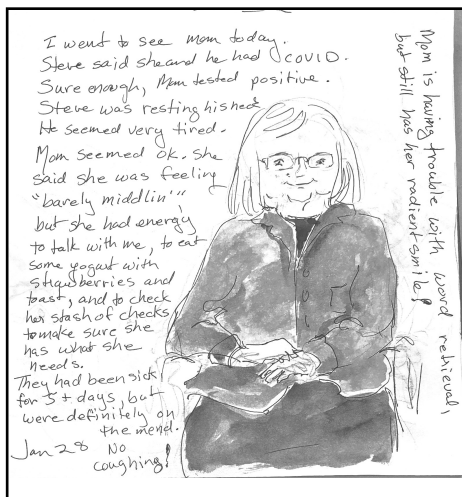 I went to see mom today.
Steve said she and he had COVID.
Sure enough, Mom tested positive.
Steve was resting his head.
He seemed very tired.
Mom seemed ok. she
said she was feeling
"barely middlin'"
but she had energy
to talk with me, to eat
some yogurt with
strawberries and
toast, and to check
her stash of checks
to make sure she
has what she
needs.
They had been sick
for 5+ days, but
were definitely on
the mend.
Jan 28 No
coughing!
Mom is having trouble with word retrieval,
but still has her radient smile!